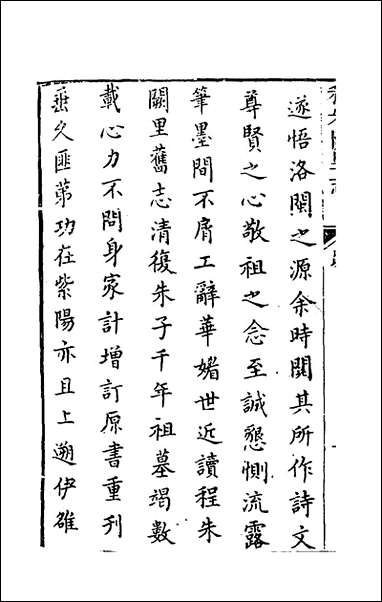 遂悟洛閩之源余時閱其所作詩文
尊賢之心敬祖之念至誠懇惻流露
筆墨間不屑工辭華媚世近讀程朱
闕里舊志清復朱子千年祖墓竭數
載心力不問身家計增訂原書重刊
垂久匪第功在紫陽亦且上遡伊雒